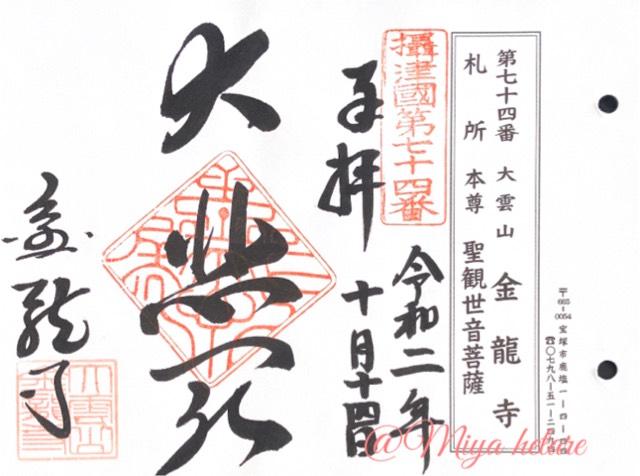 〒665-0054 宝塚市鹿塩一ー四ー
☎〇七九八ー五一ー二
第七十四番 大雲山 金龍寺
札所 本尊 聖観世音菩薩
攝津國第七十四番
奉拝 令和二年
十月十四日
大悲殿
金龍寺
@Miya hetare